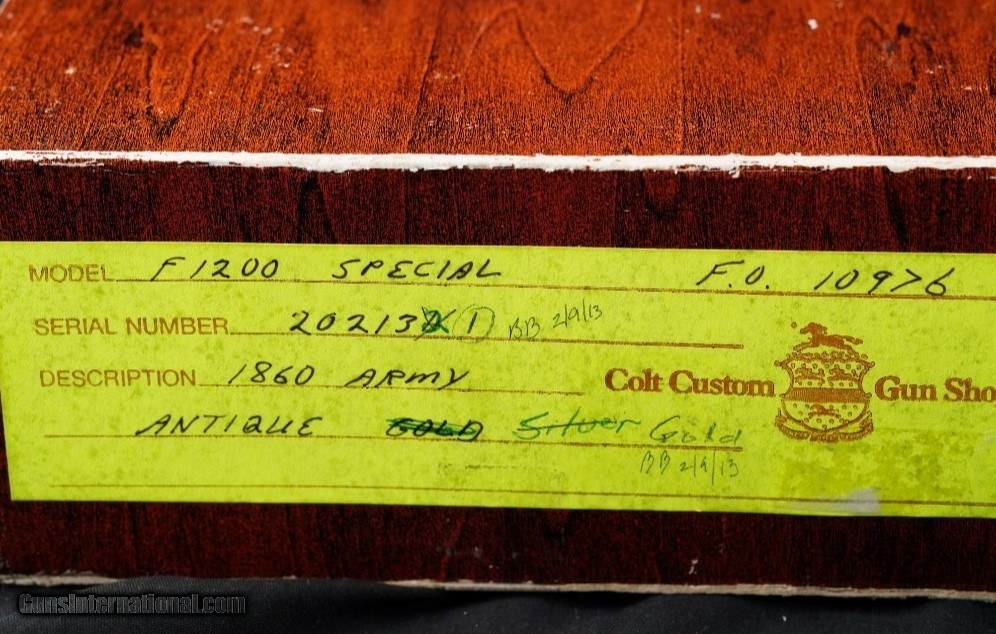 MODEL F1200 SPECIAL F.O. 10976
SERIAL NUMBER 20213 1 BB 2/9/13
DESCRIPTION 1860 ARMY
Colt Custom Gun Sho
ANTIQUE GOLD Silver Gold
BB 2/9/13
GunsInternational.com